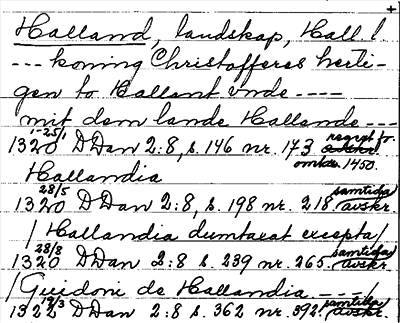 +
Halland, landskap, Hall. l
--- koning Christofferes herti-
gen to Hallant vnde ----
mit dem lande Hallende ---
1320 1-25/1 DDan 2:8, s. 146 nr. 173 regest fr. omkr. 1450.
Hallandia
1320 28/5 DDan 2:8, s. 198 nr. 218 samtida avskr.
/Hallandia dumtaxat excepta/
1320 28/8 DDan 2:8 s. 239 nr. 265. samtida avskr.
/Guidoni de Hallandia ----/
1322 12/3 DDan 2:8 s. 362 nr. 392. samtida avskr.